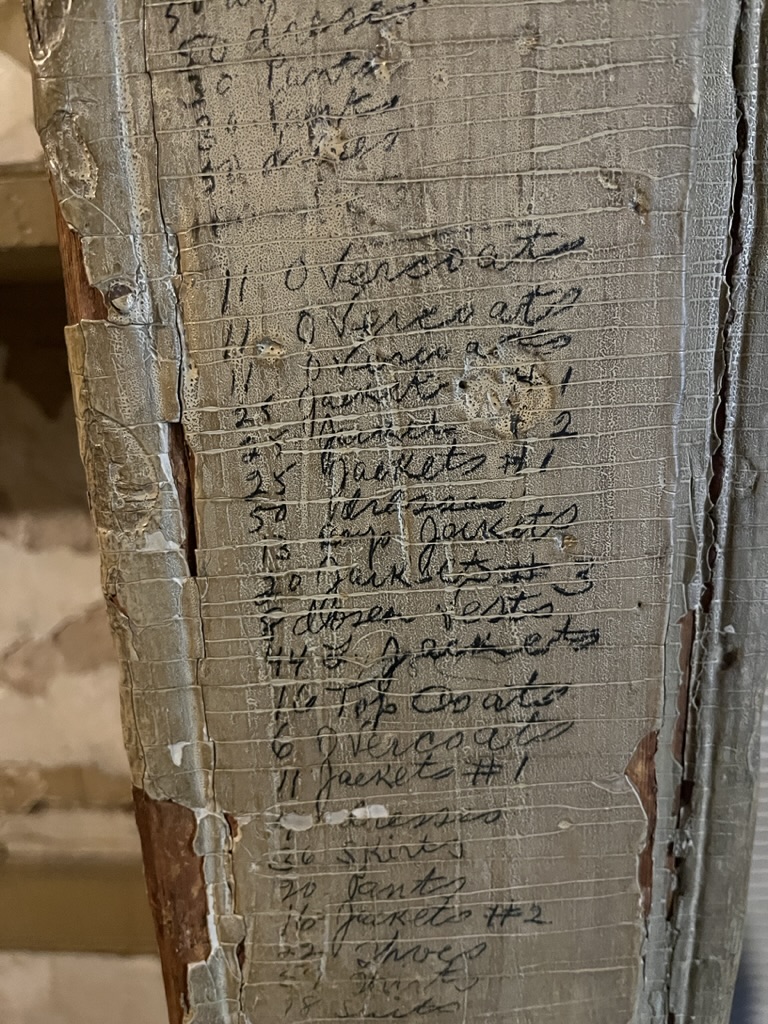 50
50 dresses
Pants
Pants
dresses
11 Overcoats
11 Overcoats
11 Overcoats
25 Jackets # 1
25 Jackets # 2
25 Jackets #1
50 dresses
15 Jackets
20 Jackets # 3
dozen vests
44 Jackets
10 Top Coats
6 Overcoats
11 Jackets #1
dresses
36 skirts
20 Pants
16 Jackets #2
22
18 suits